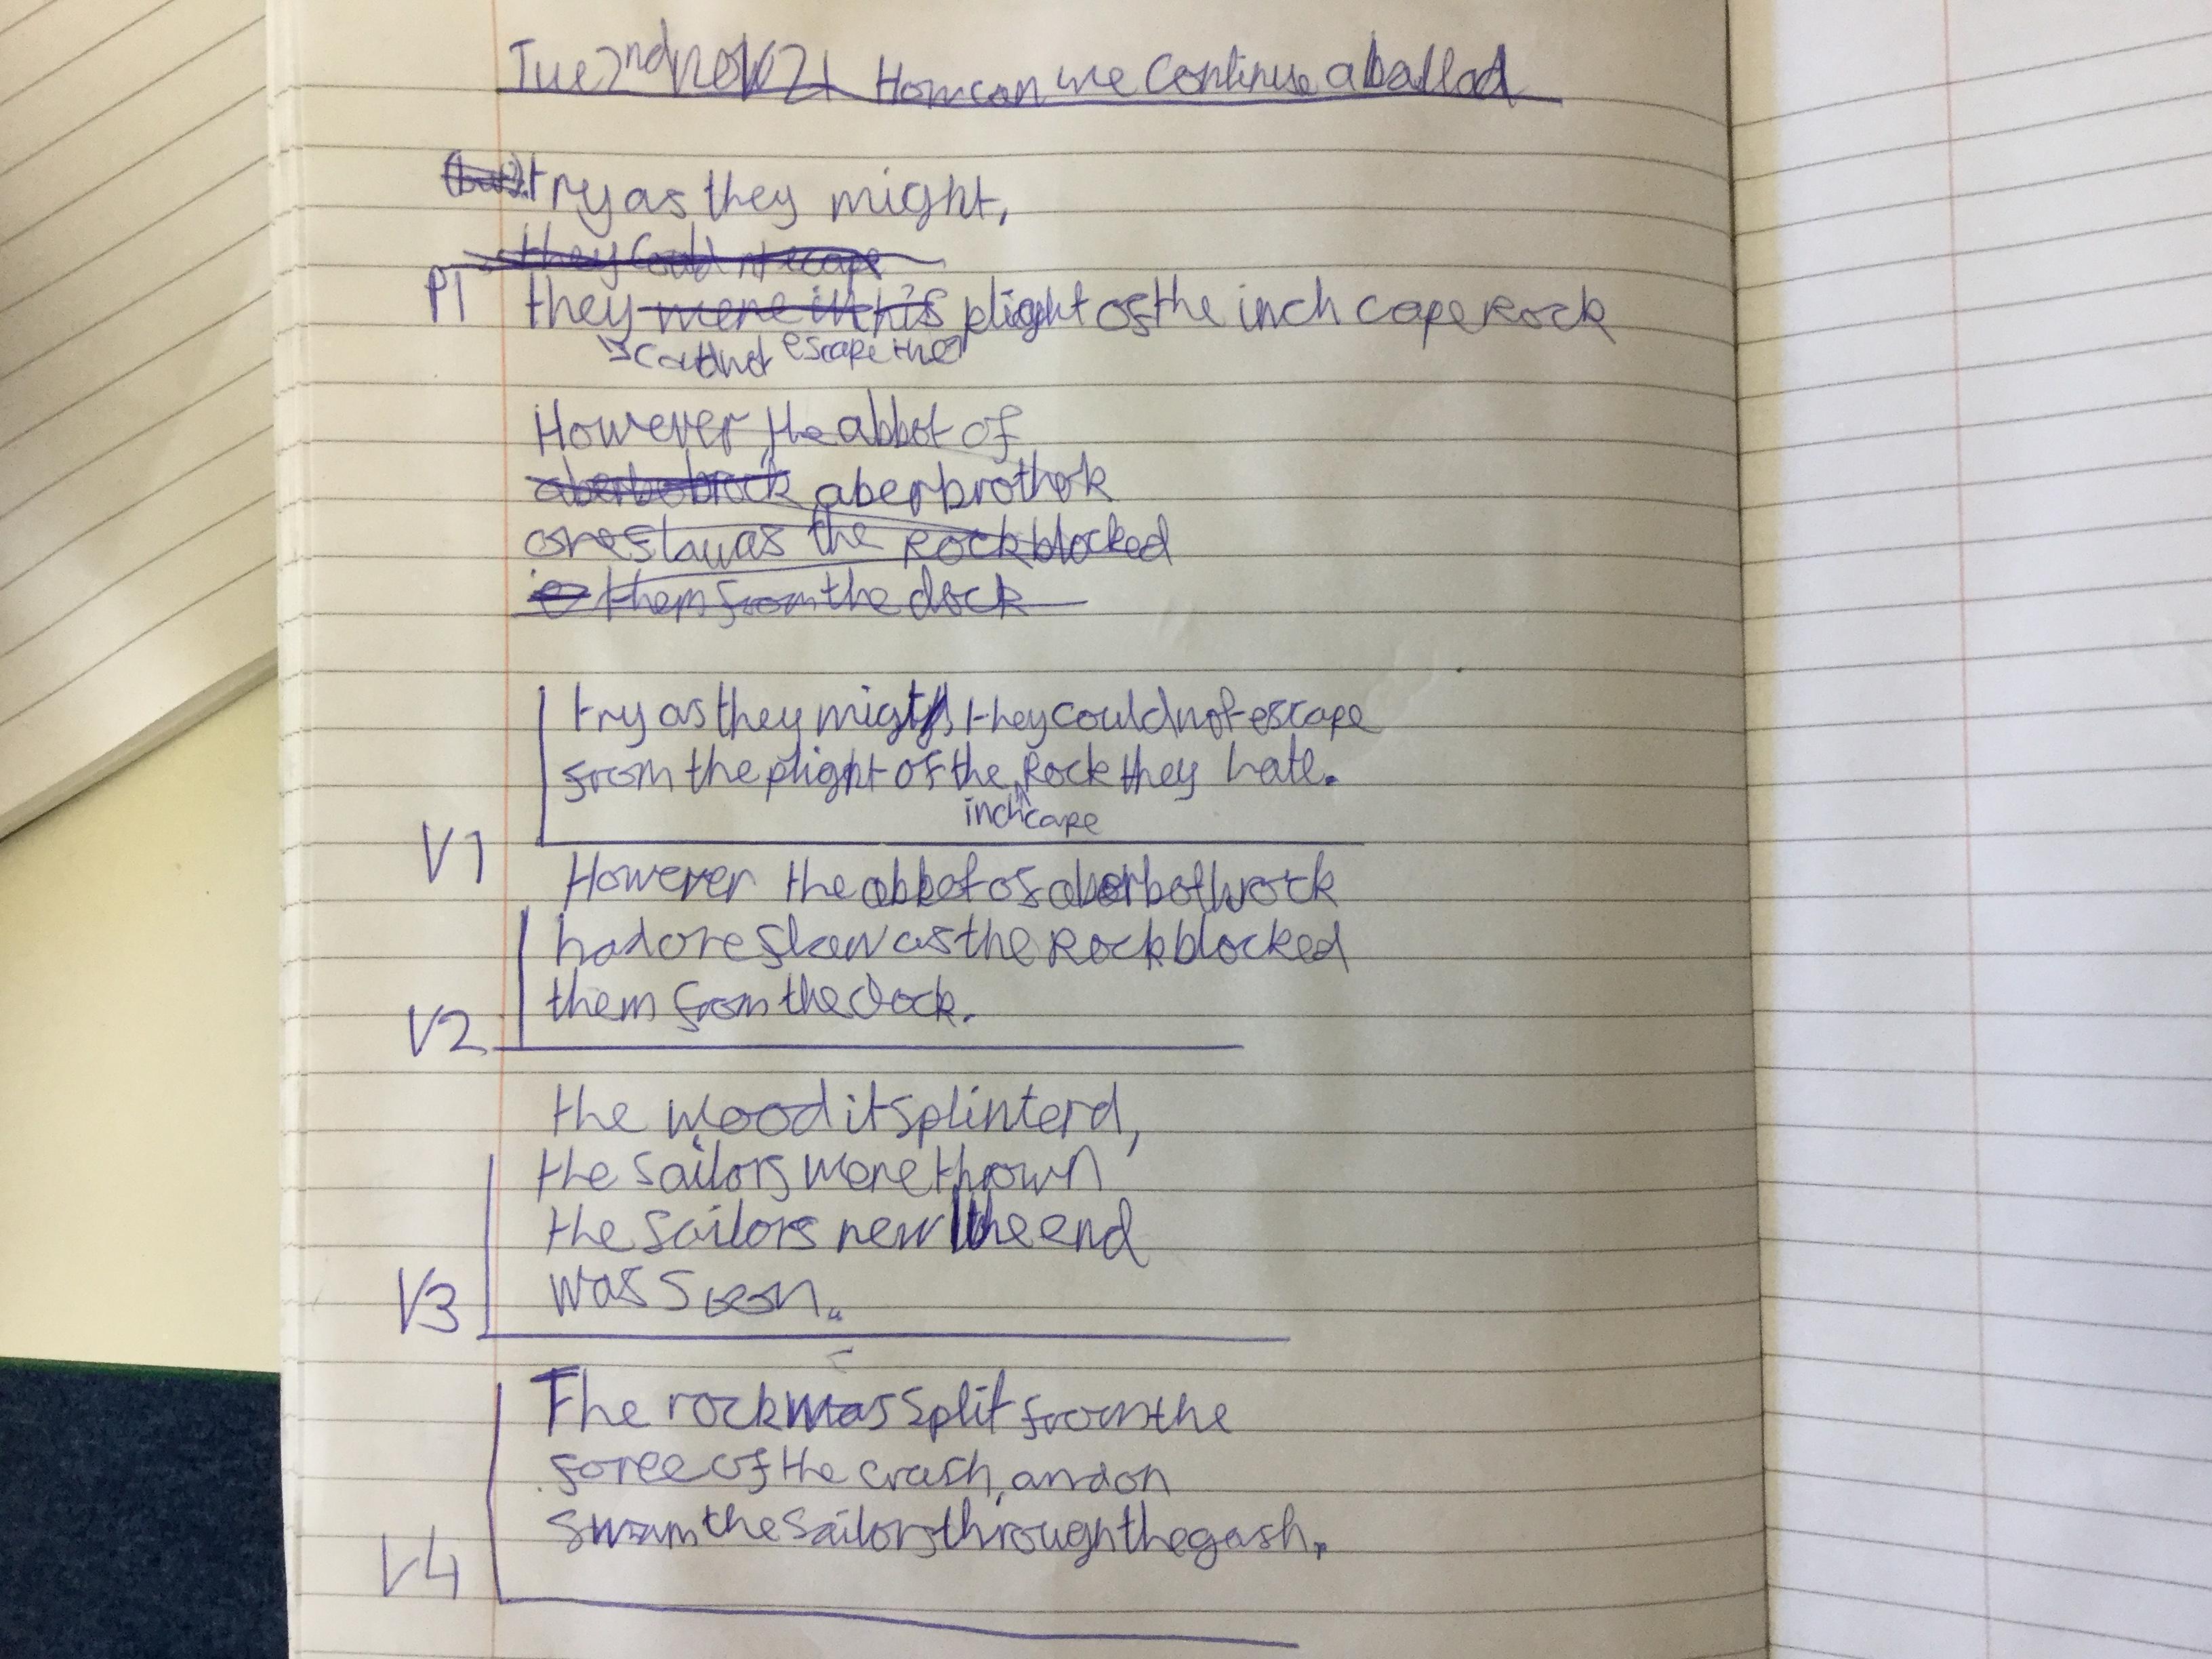 Tue 2nd nov 21 How can we continue a ballad
(but) try as they might,
they could nt ecape
P1 they were in his plight of the inch cape Rock
could not escape the
However the abbot of
aberbobrock aberbrothok
oresaw as the Rock blocked
them from the dock
try as they might, they could not escape
from the plight of the Rock they hate.
inchcape
V1
However the abbot of aberbothrock
had oresaw as the Rock blocked
them from the dock.
V2
the wood it splinterd,
the sailors were thrown
the sailors new the end
was soon.
V3
The rock was split from the
force of the crash, and on
swam the sailors through the gash.
V4